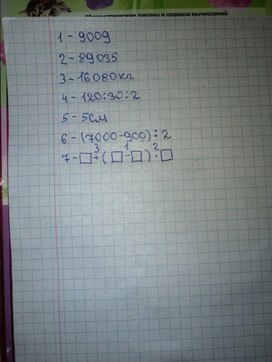 Математические законы и правила вычислений
1 - 9009
2 - 89035
3 - 16080кг
4 - 120:30:2
5 - 5см
6 - (7000-900):2
7 - □ + ( □ - □ ) : □
3 1 2